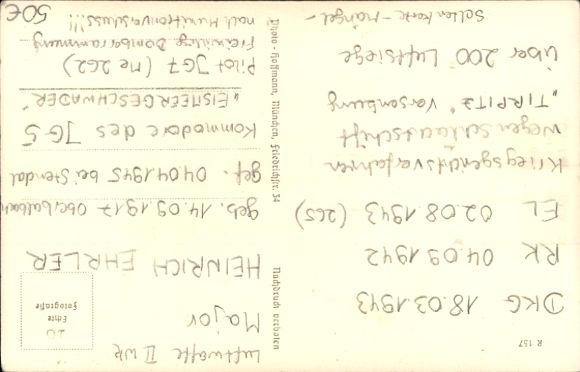 Luftwaffe II WK
Major
HEINRICH EHRLER
geb. 14.09.1917 Oberbalbach
gef. 04.04.1945 bei Stendal
Kommodore des JG 5
"EISMEERGESCHWADER"
Pilot JG7 (Me 262)
Freiwillige Bomberrammung
nach Munitionsverschuss!!!
50€
Echte
Fotografie
20
Nachdruck verboten
Photo-Hoffmann, München, Friedrichstr. 34
R 157
DKG 18.03.1943
RK 04.09.1942
EL 02.08.1943 (265)
Kriegsgerichtsverfahren
wegen Schlachtschiff
"TIRPITZ" Versenkung
Über 200 Luftsiege
Selten Karte - Mängel -